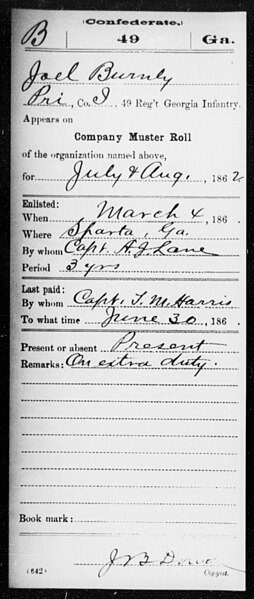 (Confederate.)
B 49 Ga.
Joel Burnley
Pri, Co. I, 49 Reg't Georgia Infantry.
Appears on
Company Muster Roll
of the organization named above,
for July & Aug., 1862.
Enlisted:
When March 4, 186 .
Where Sparta, Ga.
By whom Capt. A.J. Lane
Period 3 yrs
Last paid:
By whom Capt. T. M. Harris
To what time June 30, 186 .
Present or absent Present
Remarks: On extra duty.
Book mark:
J B
(642) Copyist.